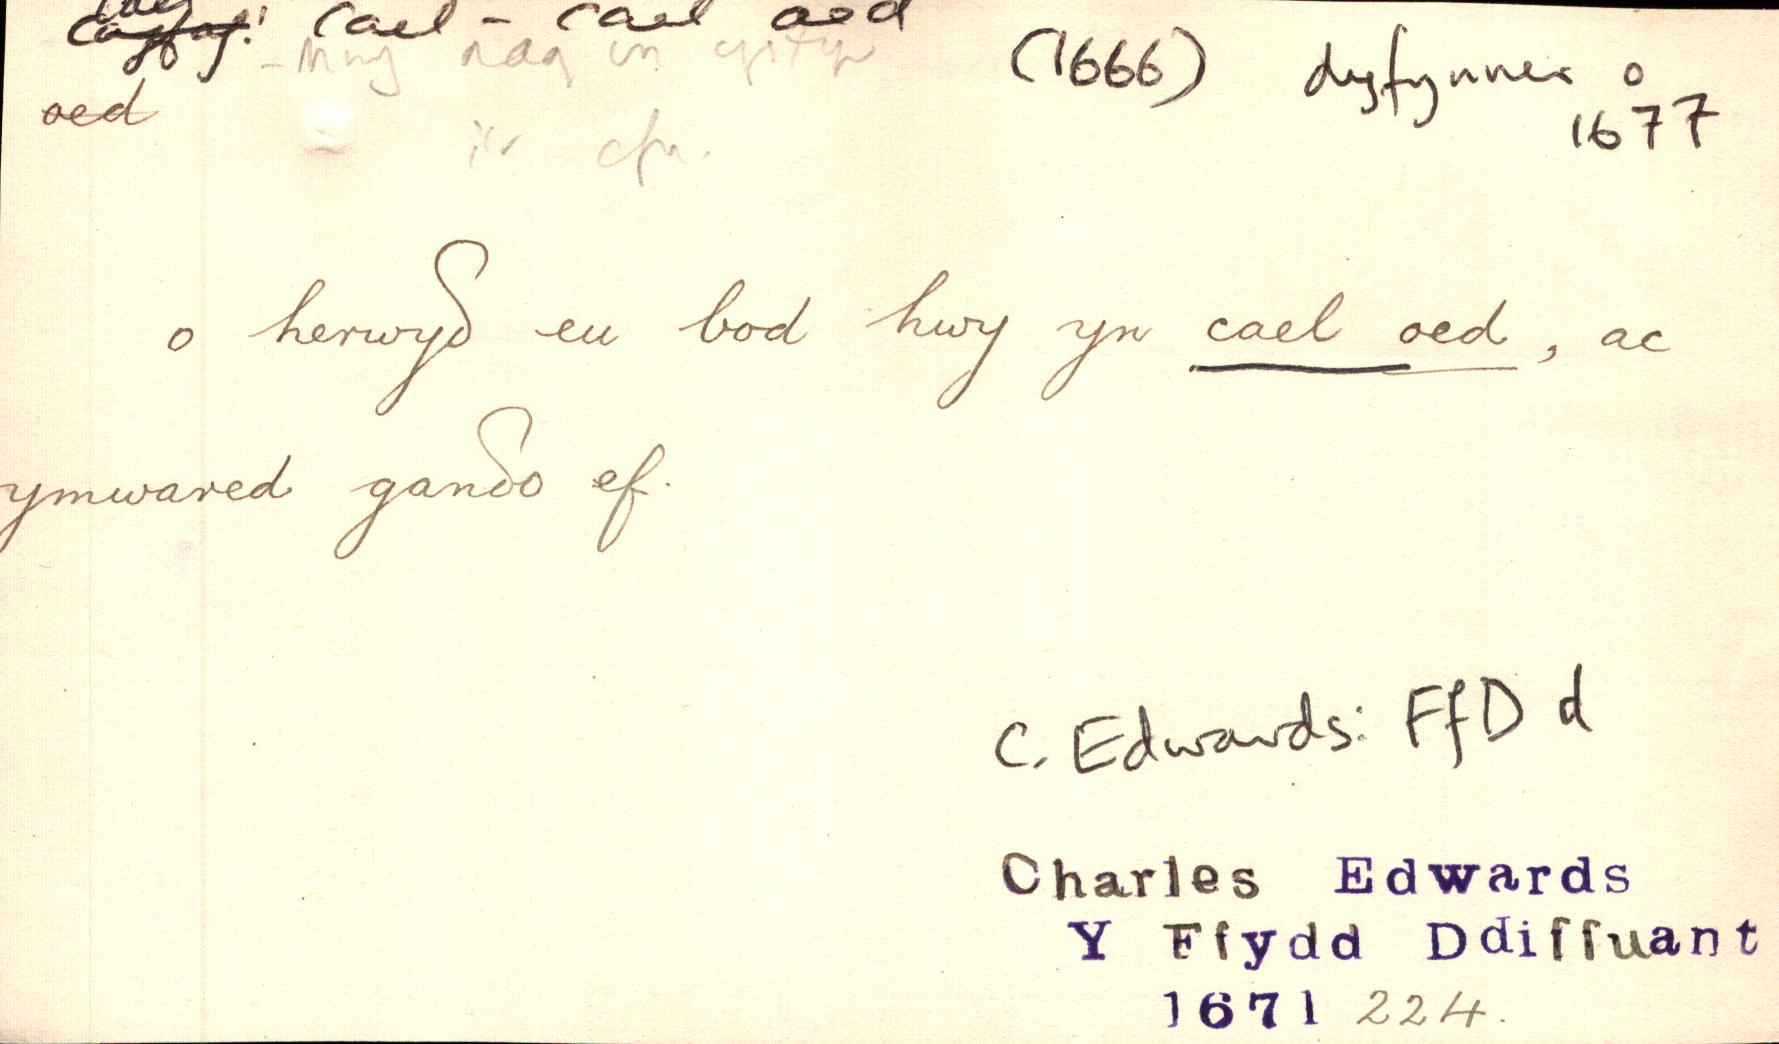 cael - cael oed
oed
(1666) dyfynner o
1677
o herwyδ eu bod hwy yn cael oed, ac
ymwared ganδo ef.
C. Edwards: FfDd
Charles Edwards
Y Ffydd Ddiffuant
1671 224.